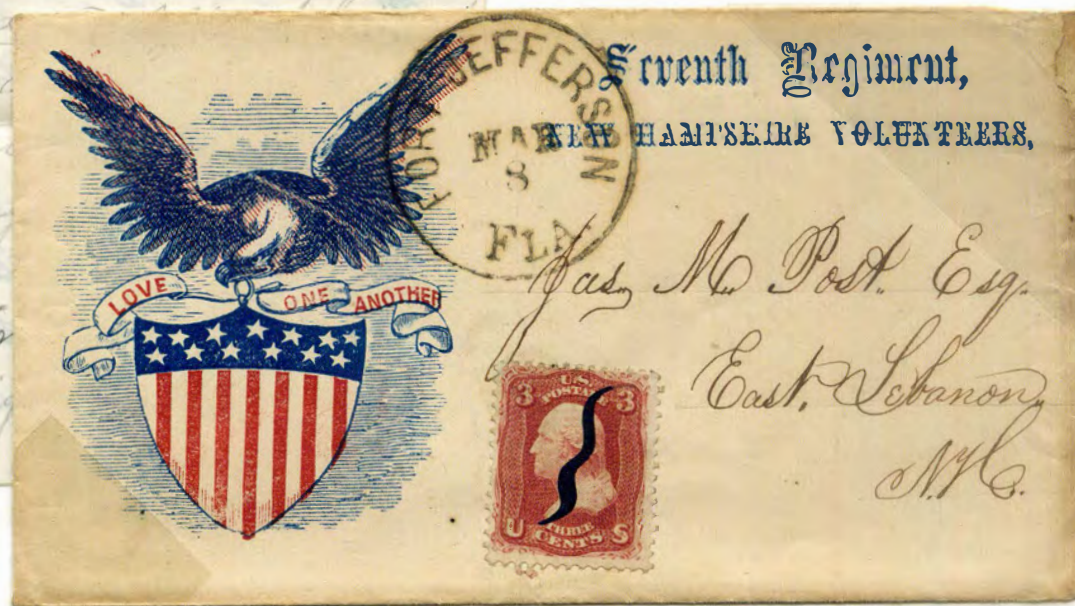 Seventh Regiment,
NEW HAMPSHIRE VOLUNTEERS,
FORT JEFFERSON
MAR
8
FLA
LOVE ONE ANOTHER
Jas. M. Post. Esq.
East. Lebanon,
N.H.
U.S. POSTAGE
3 3
THREE CENTS
U S